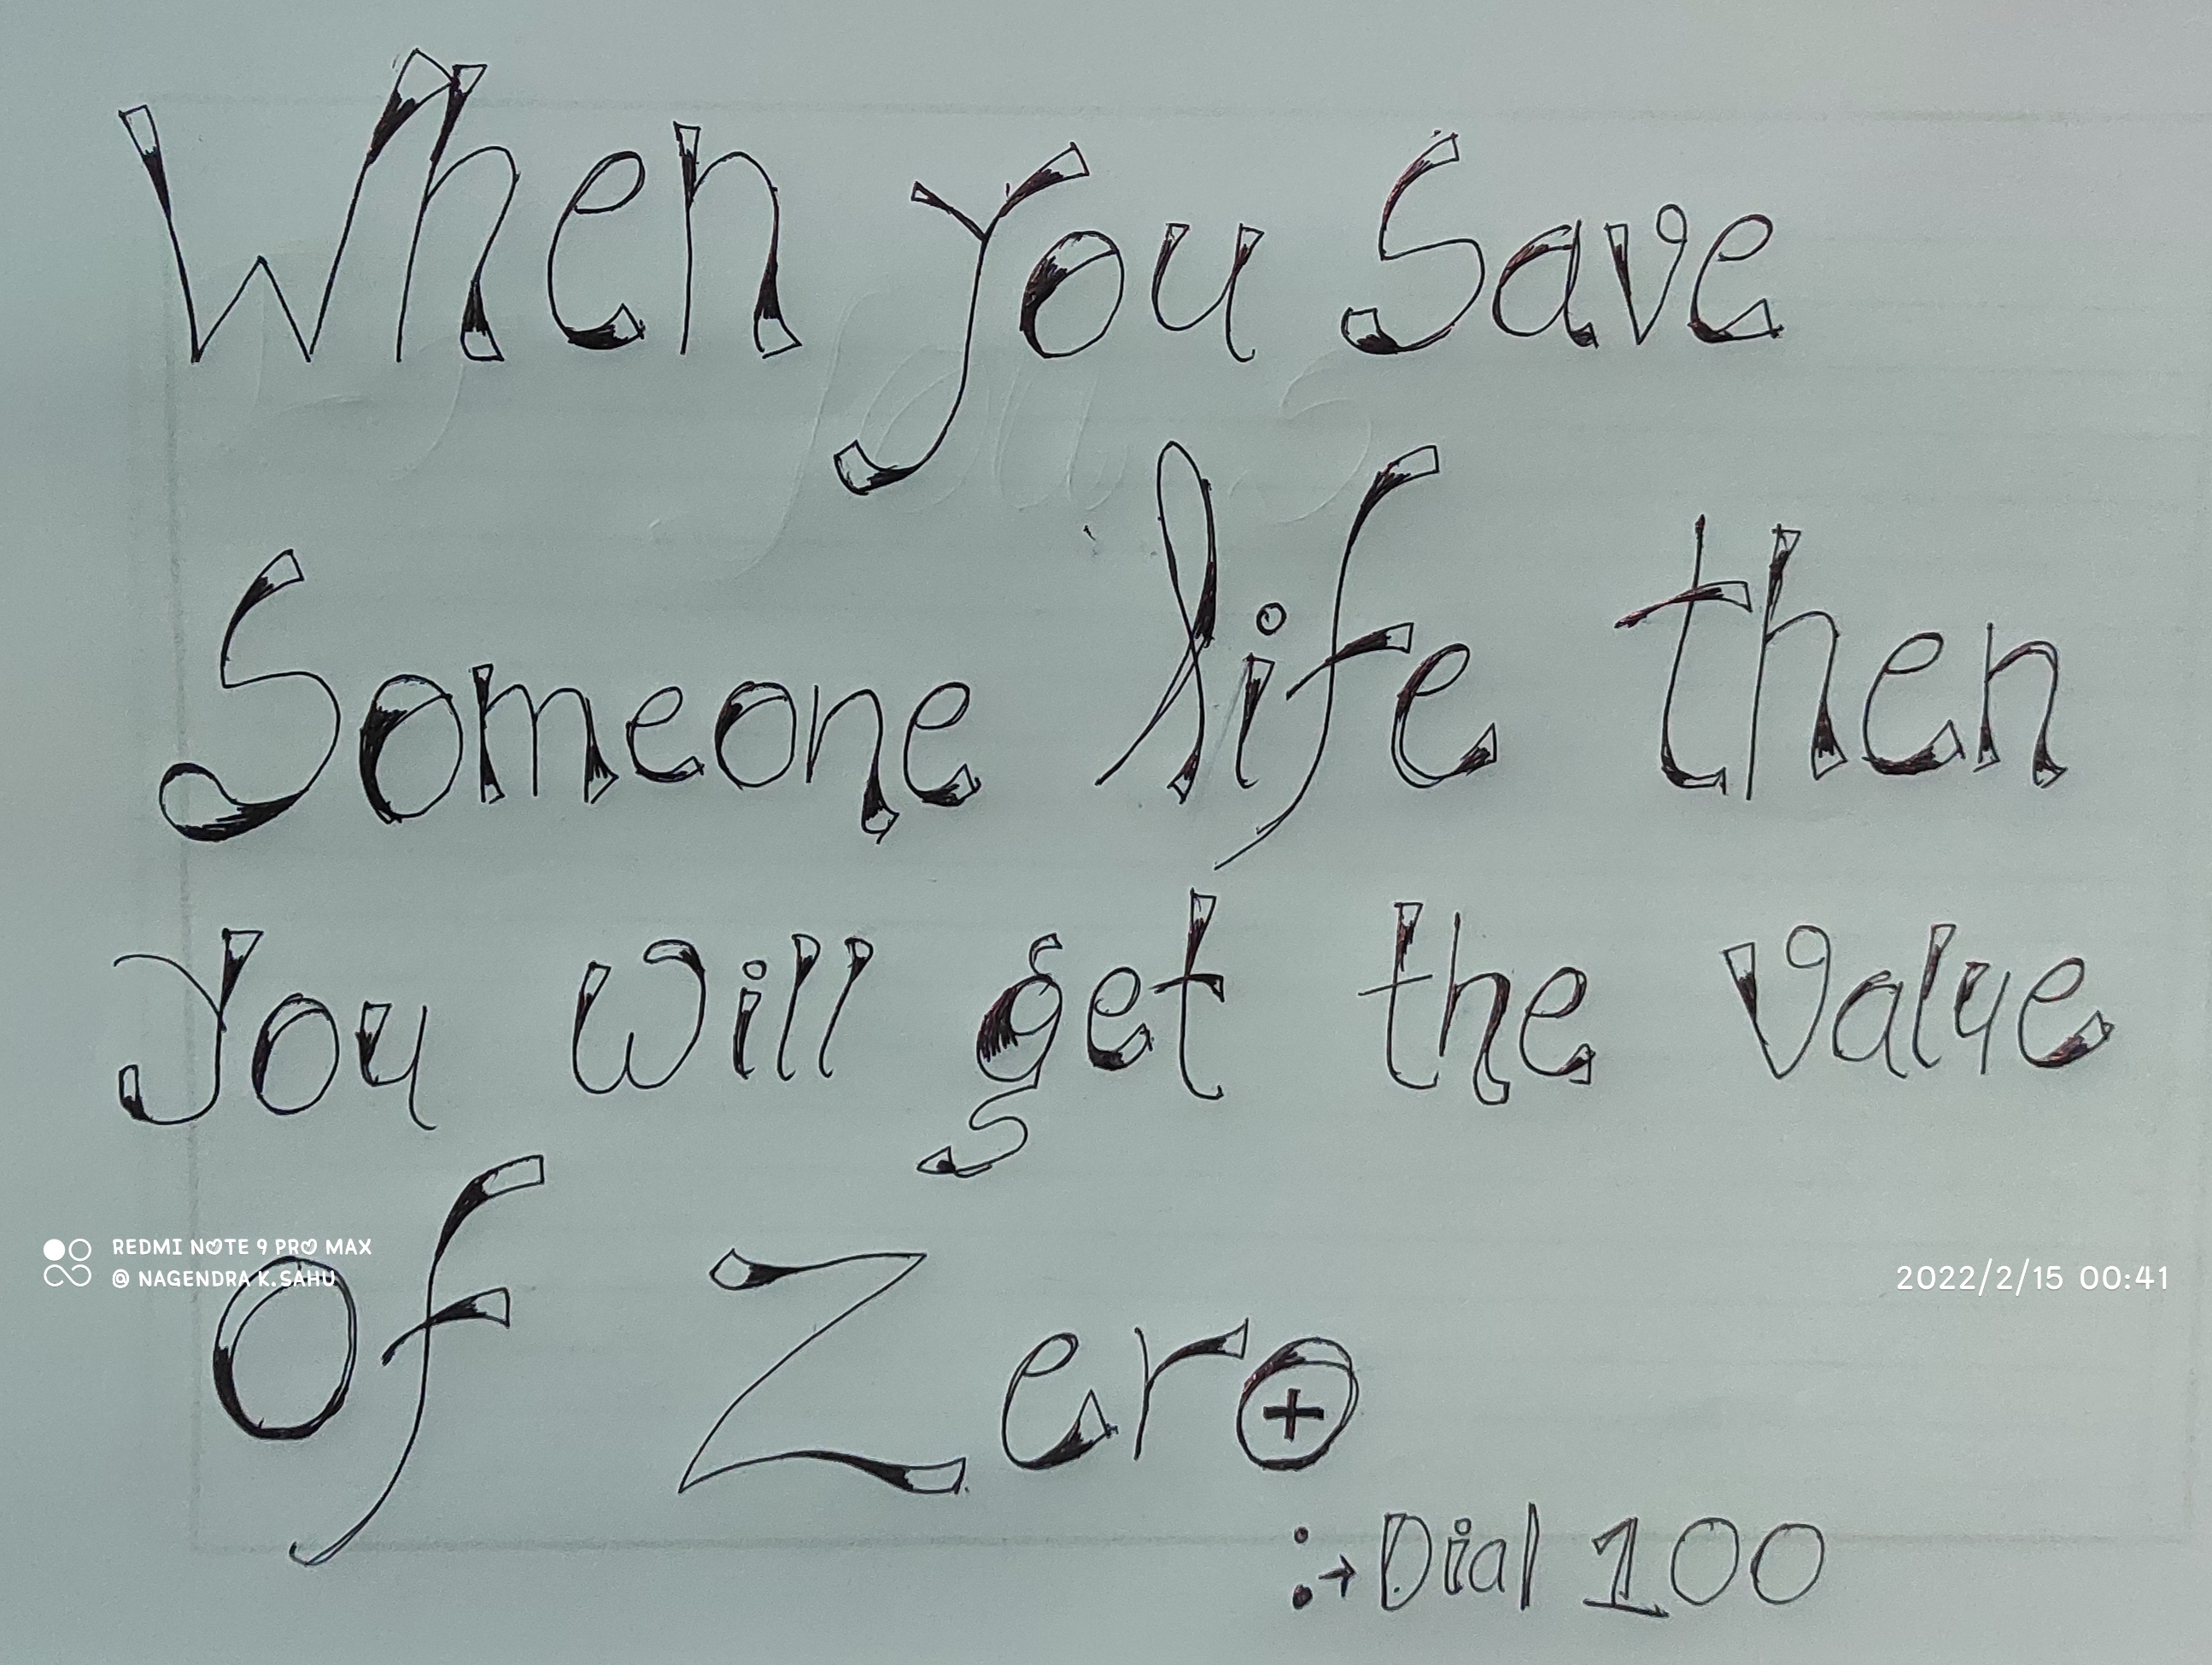 When you Save
Someone life then
you will get the value
Of Zero
:→ Dial 100
REDMI NOTE 9 PRO MAX
@ NAGENDRA K.SAHU
2022/2/15 00:41